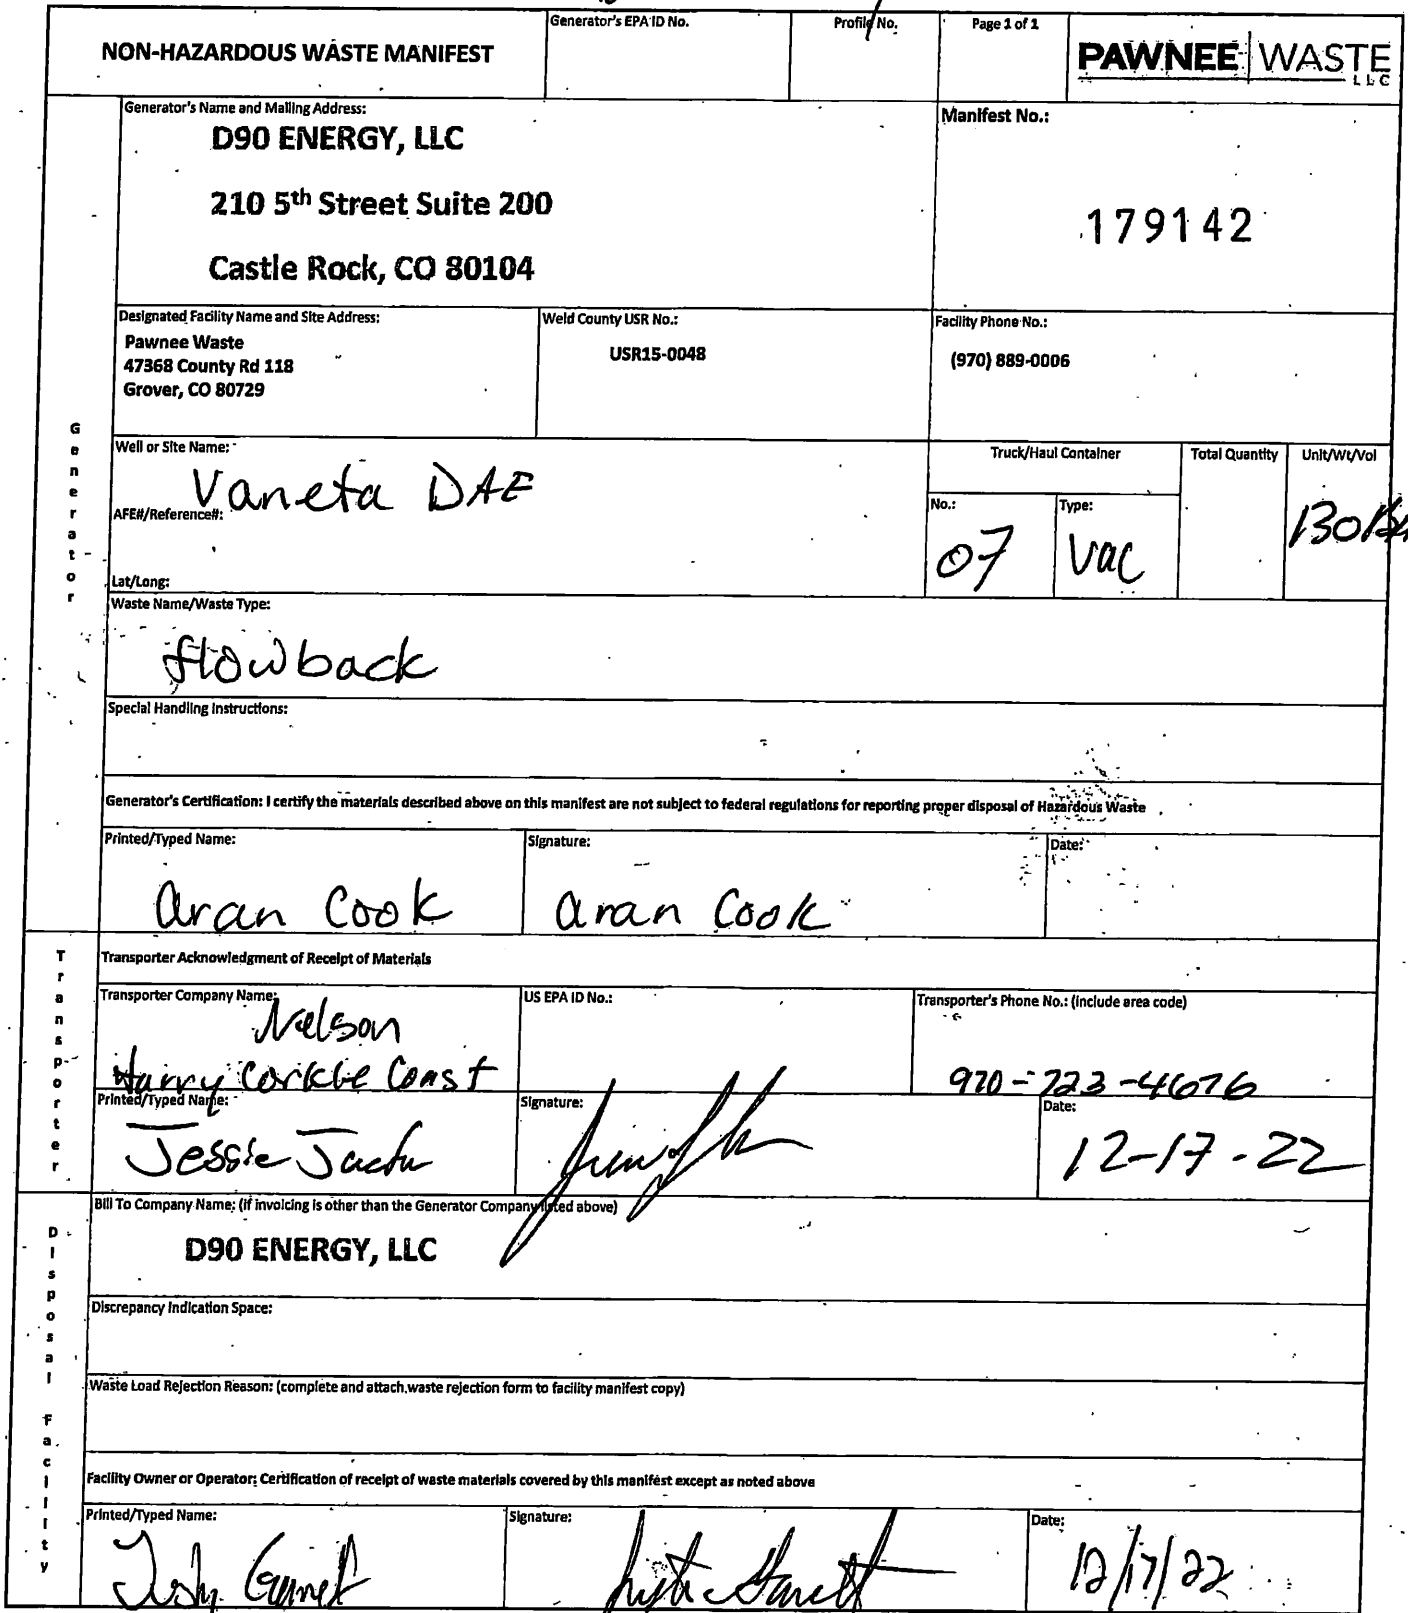 NON-HAZARDOUS WASTE MANIFEST
Generator's EPA ID No.
Profile No.
Page 1 of 1
PAWNEE WASTE
LLC
Generator
Generator's Name and Mailing Address:
D90 ENERGY, LLC
210 5th Street Suite 200
Castle Rock, CO 80104
Manifest No.:
179142
Designated Facility Name and Site Address:
Pawnee Waste
47368 County Rd 118
Grover, CO 80729
Weld County USR No.:
USR15-0048
Facility Phone No.:
(970) 889-0006
Well or Site Name:
Vaneta DAE
AFE#/Reference#:
Lat/Long:
Truck/Haul Container
No.:
07
Type:
Vac
Total Quantity
Unit/Wt/Vol
Waste Name/Waste Type:
flowback
Special Handling Instructions:
Generator's Certification: I certify the materials described above on this manifest are not subject to federal regulations for reporting proper disposal of Hazardous Waste
Printed/Typed Name:
aran Cook
Signature:
aran Cook
Date:
Transporter
Transporter Acknowledgment of Receipt of Materials
Transporter Company Name:
Nelson
Harry Const
US EPA ID No.:
Transporter's Phone No.: (include area code)
970-723-4676
Printed/Typed Name:
Jessie
Signature:
Date:
12-17-22
Disposal Facility
Bill To Company Name: (if invoicing is other than the Generator Company listed above)
D90 ENERGY, LLC
Discrepancy Indication Space:
Waste Load Rejection Reason: (complete and attach waste rejection form to facility manifest copy)
Facility Owner or Operator: Certification of receipt of waste materials covered by this manifest except as noted above
Printed/Typed Name:
Signature:
Date:
12/17/22